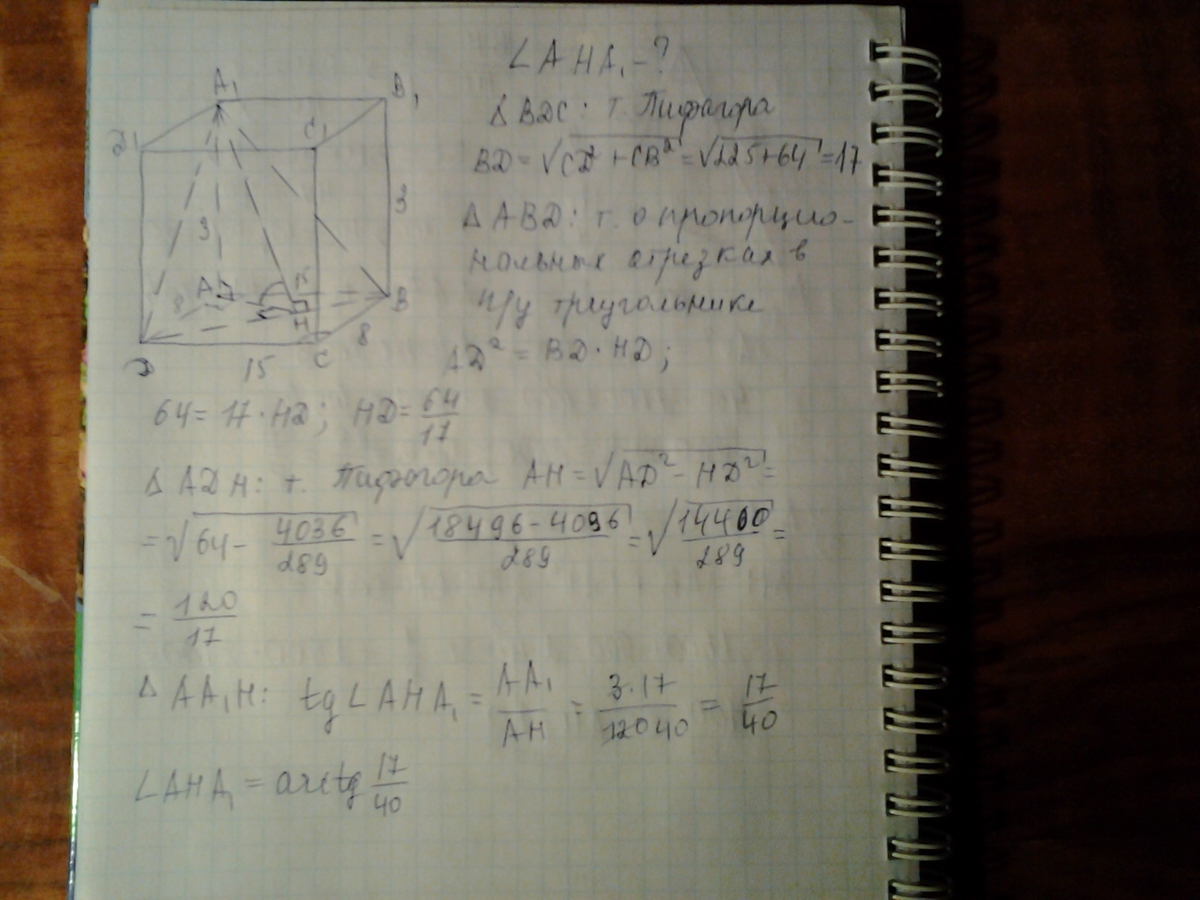 ∠AHA₁ - ?
Δ BDC: т. Пифагора
BD = √(CD² + CB²) = √(225+64) = 17
Δ ABD: т. о пропорцио-
нальных отрезках в
п/у треугольнике
AD² = BD · HD;
A₁
B₁
C₁
D₁
3
3
A
15
8
B
H
8
D
C
15
64 = 17 · HD; HD = 64/17
Δ ADH: т. Пифагора AH = √(AD² - HD²) =
= √(64 - 4036/289) = √((18496 - 4096)/289) = √(14400/289) =
= 120/17
Δ AA₁H: tg∠AHA₁ = AA₁/AH = 3·17/120 40 = 17/40
∠AHA₁ = arctg 17/40